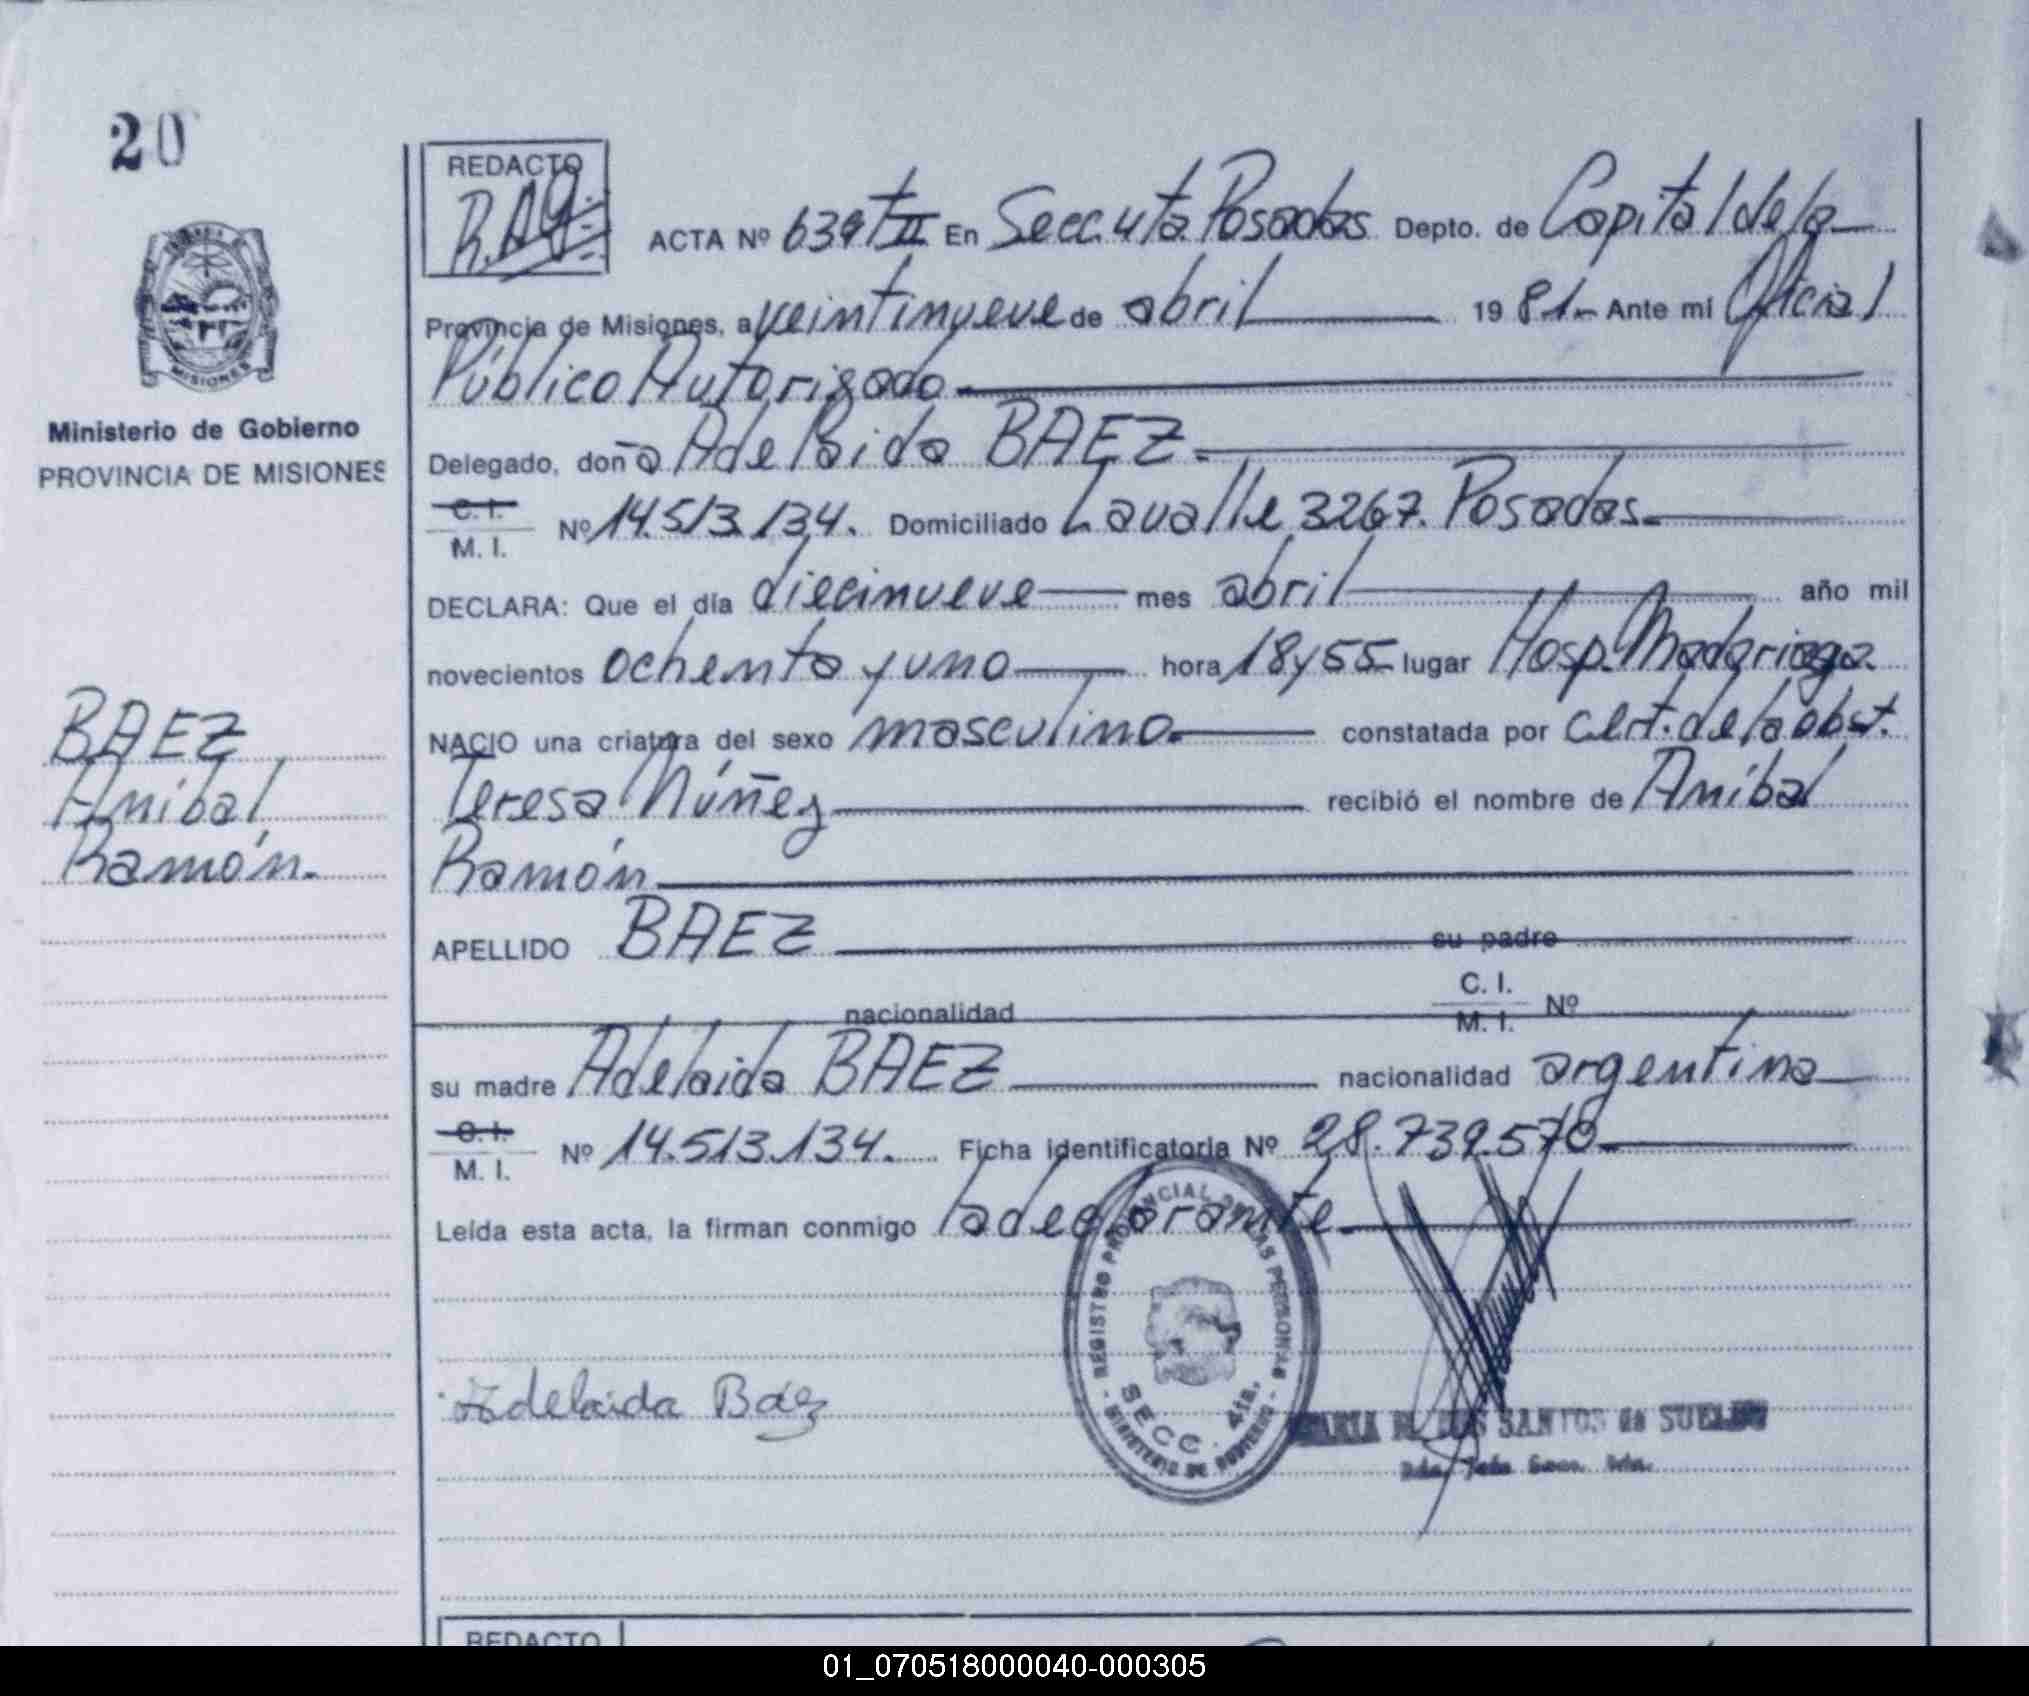 20
REDACTO
R.A.G.
ACTA Nº 639 T II En Secc. 4ta. Posadas Depto. de Capital de la
Provincia de Misiones, a veintinueve de abril 1981.- Ante mí Oficial
Público Autorizado
Ministerio de Gobierno
PROVINCIA DE MISIONES
Delegado, doña Adelaida BAEZ
C. I.
M. I. Nº 14.513.134. Domiciliado Lavalle 3267. Posadas
DECLARA: Que el día diecinueve mes abril año mil
novecientos ochenta y uno hora 18 y 55 lugar Hosp. Madariaga
NACIO una criatura del sexo masculino constatada por Cert. de la obst.
Teresa Núñez recibió el nombre de Aníbal
Ramón
BAEZ
Aníbal
Ramón.
APELLIDO BAEZ su padre
nacionalidad C. I.
M. I. Nº
su madre Adelaida BAEZ nacionalidad argentina
C. I.
M. I. Nº 14.513.134. Ficha identificatoria Nº 28.739.570
Leída esta acta, la firman conmigo la declarante
REGISTRO PROVINCIAL DE LAS PERSONAS
SECC. 4ta.
MINISTERIO DE GOBIERNO
Adelaida Baez
SANTOS de
REDACTO
01_070518000040-000305